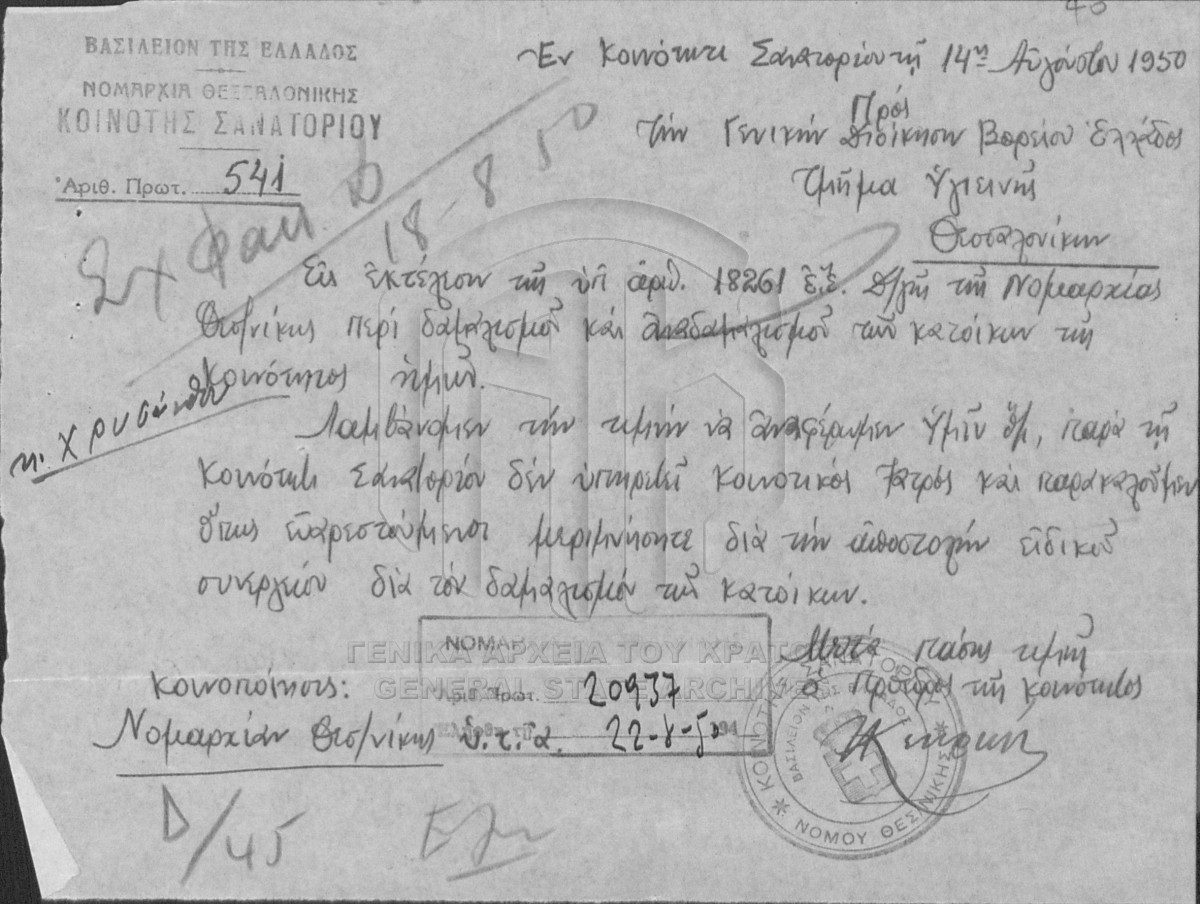 ΒΑΣΙΛΕΙΟΝ ΤΗΣ ΕΛΛΑΔΟΣ
ΝΟΜΑΡΧΙΑ ΘΕΣΣΑΛΟΝΙΚΗΣ
ΚΟΙΝΟΤΗΣ ΣΑΝΑΤΟΡΙΟΥ
Ἀριθ. Πρωτ. 541
Ἐν Κοινότητι Σανατορίου τῇ 14ῃ Αὐγούστου 1950
Πρός
Τὴν Γενικὴν Διοίκησιν Βορείου Ἑλλάδος
Τμῆμα Ὑγιεινῆς
Θεσσαλονίκην
18-8-50
Εἰς ἐκτέλεσιν τῆς ὑπ' ἀριθ. 18261 ἐ.ἔ. Δ/γῆς τῆς Νομαρχίας
Θεσ/νίκης περὶ δαμαλισμοῦ καὶ ἀναδαμαλισμοῦ τῶν κατοίκων τῆς
Κοινότητος ἡμῶν.
κ. Χρυσάνθη
Λαμβάνομεν τὴν τιμὴν νὰ ἀναφέρωμεν Ὑμῖν ὅτι, παρὰ τῇ
Κοινότητι Σανατορίου δὲν ὑπηρετεῖ Κοινοτικός Ἰατρός καὶ παρακαλοῦμεν
ὅπως εὐαρεστούμενοι μεριμνήσητε διὰ τὴν ἀποστολὴν εἰδικοῦ
συνεργείου διὰ τὸν δαμαλισμόν τῶν κατοίκων.
Μετὰ πάσης τιμῆς
ὁ Πρόεδρος τῆς Κοινότητος
Κοινοποίησις:
Νομαρχίαν Θεσ/νίκης ὑ.τ.α.
ΝΟΜΑΡ
Ἀριθ. Πρωτ. 20937
22-8-50
ΓΕΝΙΚΑ ΑΡΧΕΙΑ ΤΟΥ ΚΡΑΤΟΥΣ
GENERAL STATE ARCHIVES
ΝΟΜΟΥ ΘΕΣ/ΝΙΚΗΣ
D/45